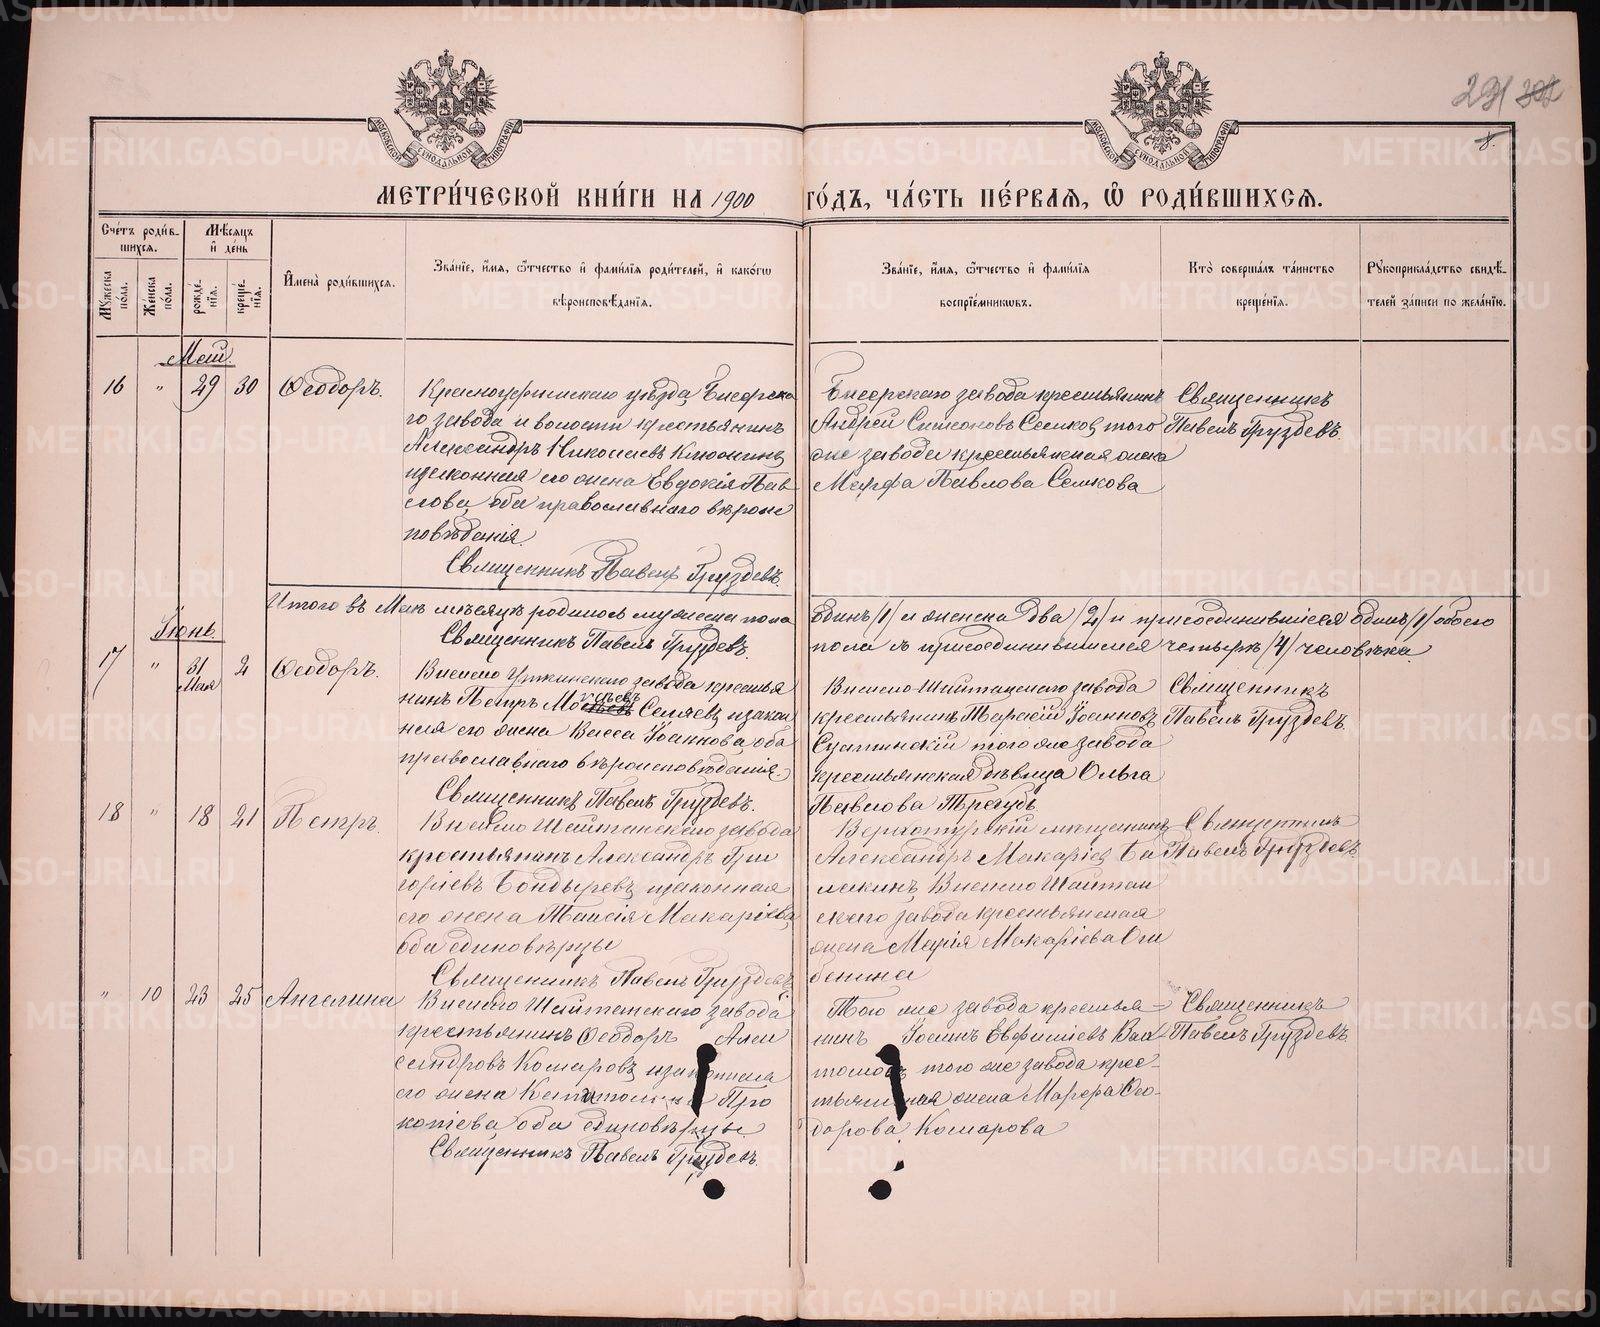 291 302
8.
МОСКОВСКОЙ СѴНОДАЛЬНОЙ ТИПОГРАФІИ
МОСКОВСКОЙ СѴНОДАЛЬНОЙ ТИПОГРАФІИ
МЕТРИ́ЧЕСКОЙ КНИ́ГИ НА 1900 ГО́ДЪ, ЧА́СТЬ ПЕ́РВАѦ, Ѽ РОДИ́ВШИХСѦ.
Сче́тъ роди́вшихсѧ.
Мѣ́сѧцъ и҆ де́нь
Мꙋ́жеска по́ла.
Же́нска по́ла.
рожде́нїѧ.
креще́нїѧ.
И҆мена̀ роди́вшихсѧ.
Зва́нїе, и҆́мѧ, ѻ҆́тчество и҆ фами́лїѧ роди́телей, и҆ како́гѡ
вѣроисповѣ́данїѧ.
Зва́нїе, и҆́мѧ, ѻ҆́тчество и҆ фами́лїѧ
воспрїе́мникѡвъ.
Кто̀ соверша́лъ та́инство
креще́нїѧ.
Рꙋкоприкла́дство свидѣ́телей за́писи по жела́нїю.
Май.
16 " 29 30 Ѳеодоръ.
Красноуфимскаго уѣзда, Бисерска
го завода и волости крестьянинъ
Александръ Николаевъ Клюкинъ
и законная его жена Евдокія Пав
лова, оба православнаго вѣроис
повѣданія.
Священникъ Павелъ Груздевъ.
Бисерскаго завода крестьянинъ
Андрей Симеоновъ Селиковъ, того
же завода крестьянская жена
Марфа Павлова Селикова
Священникъ
Павелъ Груздевъ.
Итого въ Маѣ мѣсяцѣ родилось мужеска пола
одинъ /1/ и женска два /2/ и присоединившійся одинъ /1/ обоего
Священникъ Павелъ Груздевъ.
пола съ присоединившимся четыре /4/ человѣка.
Іюнь.
17 " 31 Мая 2 Ѳеодоръ.
Висимо Уткинскаго завода крестья
нинъ Петръ Мо Селяевъ и закон
ная его жена Васса Іоаннова, оба
православнаго вѣроисповѣданія.
Священникъ Павелъ Груздевъ.
Висимо Шайтанскаго завода
крестьянинъ Тарасій Іоанновъ
того же завода
крестьянская дѣвица Ольга
Павлова
Священникъ
Павелъ Груздевъ.
18 " 18 21 Петръ.
Висимо Шайтанскаго завода
крестьянинъ Александръ Гри
горіевъ Бондыревъ, и законная
его жена Таисія Макаріева,
оба единовѣрцы
Священникъ Павелъ Груздевъ
Верхотурскій мѣщанинъ
Александръ Макаріевъ Ба
лакинъ Висимо Шайтан
скаго завода крестьянская
жена Марія Макаріева Оги
бенина
Священникъ
Павелъ Груздевъ
" 10 23 25 Ангелина
Висимо Шайтанскаго завода
крестьянинъ Ѳеодоръ Алек
сандровъ Комаровъ, и законная
его жена Капитолина Про
копіева, оба единовѣрцы.
Священникъ Павелъ Груздевъ.
Того же завода крестья-
нинъ Іоаннъ Евфиміевъ
того же завода крес-
тьянская жена Марфа Ѳео-
дорова Комарова
Священникъ
Павелъ Груздевъ
METRIKI.GASO-URAL.RU